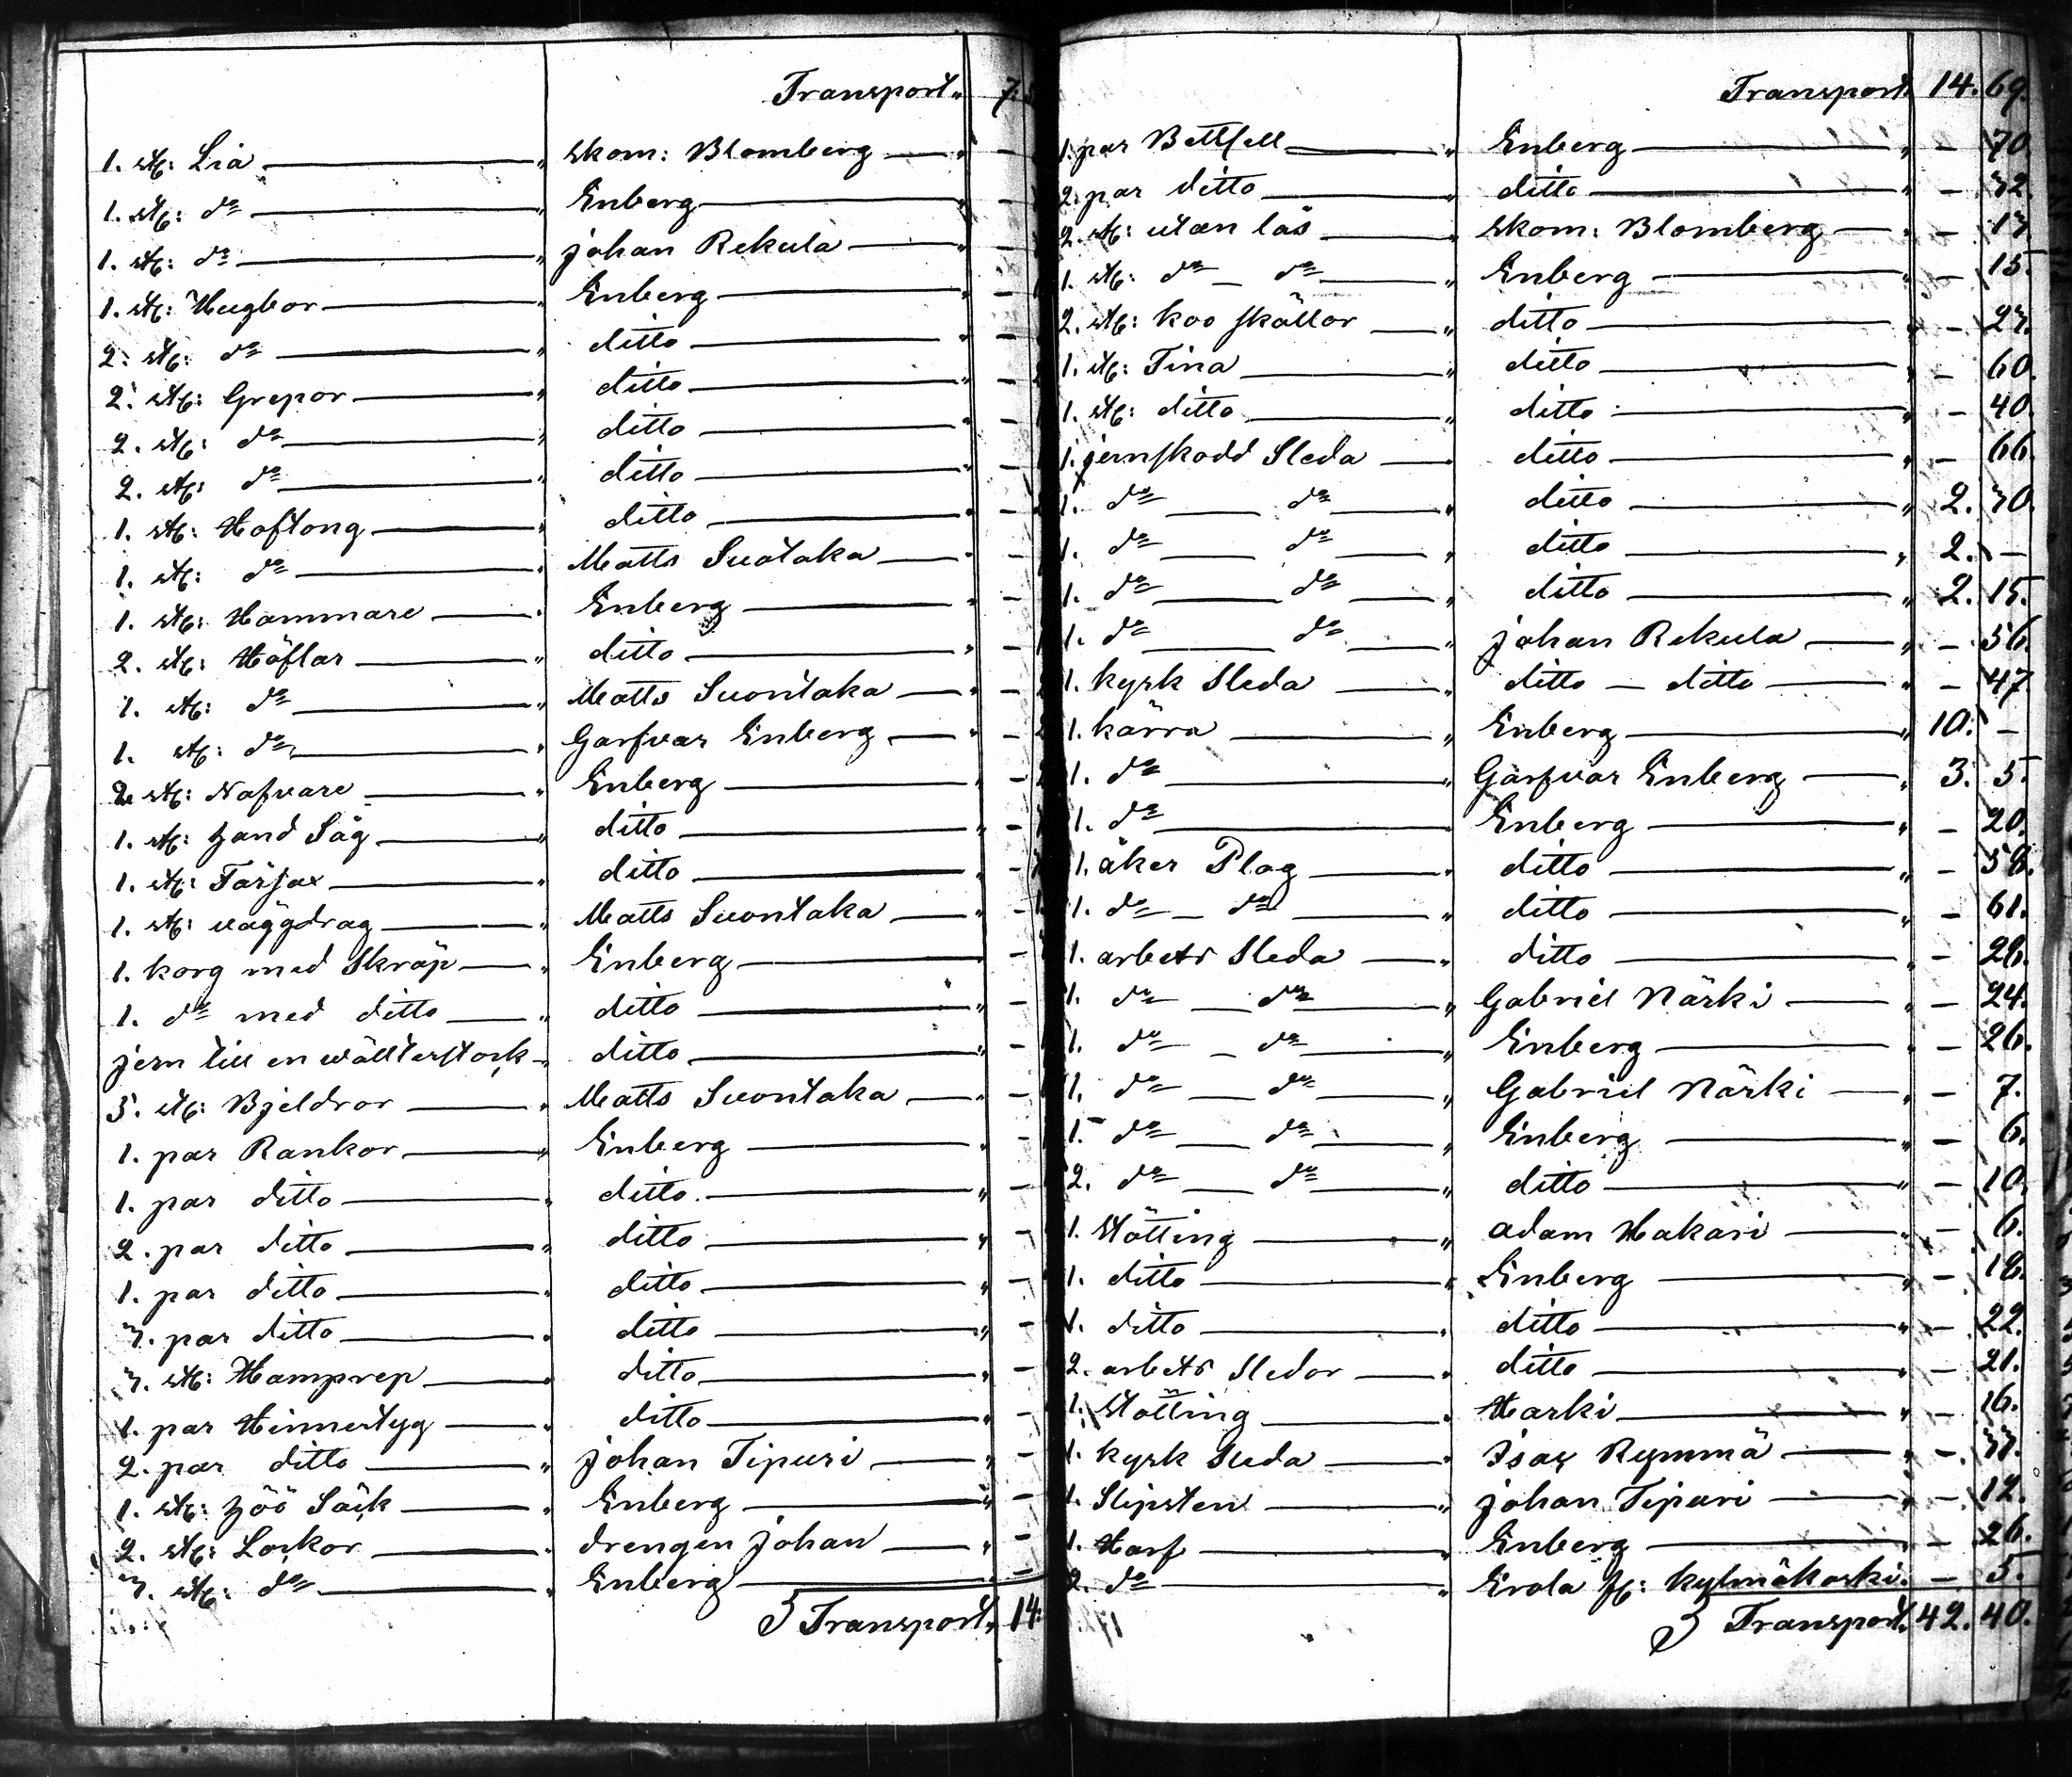 Transport " 7.
1. st: Lia " skom: Blomberg " –
1. st: do " Enberg " –
1. st: do " johan Rekula " –
1. st: Hugbor " Enberg " –
2. st: do " ditto " –
2. st: Grepor " ditto " –
2. st: do " ditto " –
2. st: do " ditto " –
1. st: Hoftong " ditto " –
1. st: do " Matts Suotaka " –
1. st: Hammare " Enberg " –
2. st: Höflar " ditto " –
1. st: do " Matts Suontaka " –
1. st: do " Garfvar Enberg " –
2 st: Nafvare " Enberg " –
1. st: hand Såg " ditto " –
1. st: Tärjax " ditto –
1. st: väggdrag " Matts Suontaka " –
1. korg med Skräp " Enberg –
1. do med ditto " ditto " –
jern till en wällterstock " ditto " –
3. st: Bjeldror " Matts Suontaka " –
1. par Rankor " Enberg " –
1. par ditto " ditto " –
2. par ditto " ditto " –
1. par ditto " ditto " –
3. par ditto " ditto " –
3. st: Hamprep " ditto " –
1. par Hinnertyg " ditto " –
2. par ditto " johan Tipuri " –
1. st: höö Säck " Enberg " –
2. st: Lockor " drengen johan " –
3. st: do " Enberg –
Transport " 14.
Transport. 14. 69.
1. par Bettsell " Enberg " – 70
2. par ditto " ditto " – 32.
2. st: utan lås " skom: Blomberg " – 13
1. st: do – do " Enberg " – 15.
2. st: koo skällor " ditto " – 23.
1. st: Tina " ditto " – 60.
1. st: ditto " ditto " – 40.
1. jernskodd Sleda " ditto " – 66.
1. do do " ditto " 2. 30.
1. do do " ditto " 2. –
1. do do " ditto " 2. 15.
1. do do " johan Rekula " – 56.
1. kyrk Sleda " ditto – ditto " – 47
1. kärra " Enberg " 10. –
1. do " Garfvar Enberg " 3. 5.
1. do Enberg " – 20.
1. åker Plog " ditto " – 58.
1. do – do " ditto " – 61.
1. arbets Sleda " ditto " – 28.
1. do – do " Gabriel Närki " – 24.
1. do – do " Enberg " – 26.
1. do – do " Gabriel Närki " – 7.
1. do – do " Enberg " – 6.
2. do – do " ditto " – 10.
1. Stötting " adam Hakari " – 6.
1. ditto " Enberg " – 18.
1. ditto " ditto " – 22.
2. arbets Sledor " ditto " – 21.
1. Stötting " Harki " – 16.
1. kyrk Sleda " Isax Rymmä " – 33.
1. Slipsten " johan Tipuri " – 12.
1. Harf " Enberg " – 26.
2. do " Erola kylmäkoski. – 5.
Transport. 42. 40.